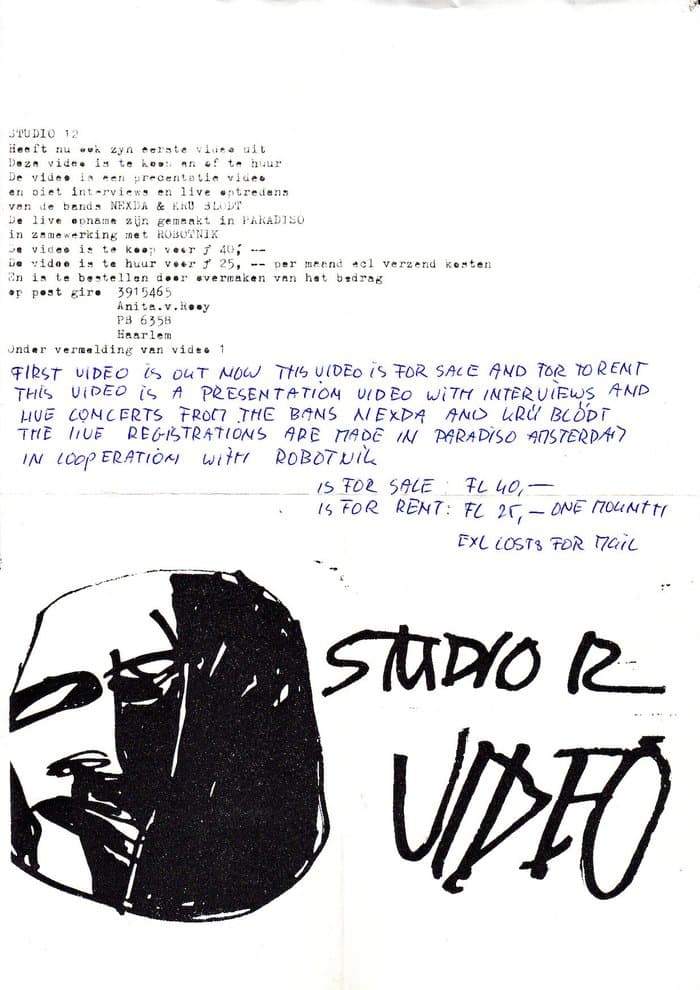 STUDIO 12
Heeft nu ook zyn eerste video uit
Deze video is te koop en of te huur
De video is een precentatie video
en biet interviews en live optredens
van de bands NEXDA & KRU BLODT
De live opname zijn gemaakt in PARADISO
in zamewerking met ROBOTNIK
De video is te koop voor ƒ 40, --
De video is te huur voor ƒ 25, -- per maand ecl verzend kosten
En is te bestellen door overmaken van het bedrag
op post giro 3915465
Anita.v.Rooy
PB 6358
Haarlem
Onder vermelding van video 1
FIRST VIDEO IS OUT NOW THIS VIDEO IS FOR SALE AND FOR TO RENT
THIS VIDEO IS A PRESENTATION VIDEO WITH INTERVIEWS AND
LIVE CONCERTS FROM THE BANS NEXDA AND KRÜ BLÖDT
THE LIVE REGISTRATIONS ARE MADE IN PARADISO AMSTERDAM
IN COOPERATION WITH ROBOTNIK
IS FOR SALE: FL 40,—
IS FOR RENT: FL 25,— ONE MOUNTH
EXL COSTS FOR MAIL
STUDIO 12
VIDEO